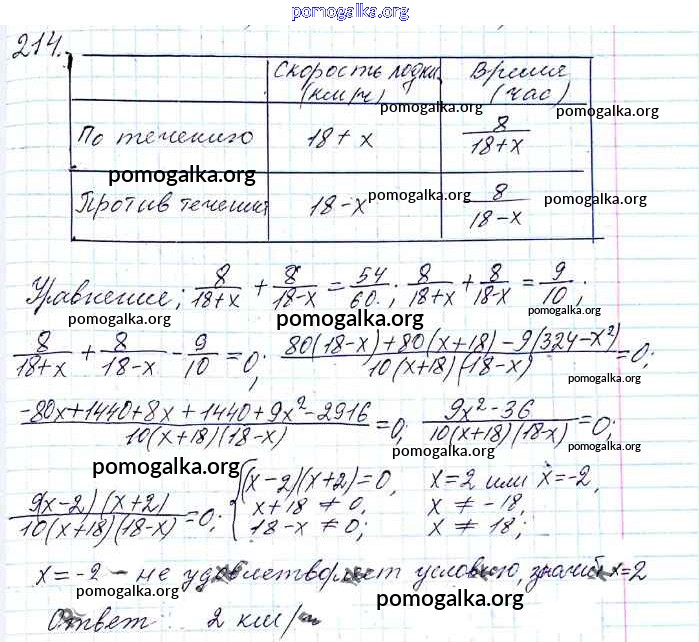 pomogalka.org
214.
Скорость лодки (км/ч) | Время (час)
pomogalka.org pomogalka.org
По течению | 18+x | 8/(18+x)
pomogalka.org pomogalka.org pomogalka.org
Против течения | 18-x | 8/(18-x)
Уравнение: 8/(18+x) + 8/(18-x) = 54/60; 8/(18+x) + 8/(18-x) = 9/10;
pomogalka.org pomogalka.org pomogalka.org
8/(18+x) + 8/(18-x) - 9/10 = 0; (80(18-x)+80(x+18)-9(324-x²))/(10(x+18)(18-x)) = 0;
pomogalka.org
(-80x+1440+8x+1440+9x²-2916)/(10(x+18)(18-x)) = 0; (9x²-36)/(10(x+18)(18-x)) = 0;
pomogalka.org pomogalka.org pomogalka.org
9(x-2)(x+2)/(10(x+18)(18-x)) = 0; { (x-2)(x+2)=0, x=2 или x=-2,
x+18 ≠ 0, x ≠ -18,
18-x ≠ 0; x ≠ 18;
pomogalka.org
x=-2 - не удовлетворяет условию, значит x=2
pomogalka.org pomogalka.org
Ответ: 2 км/ч